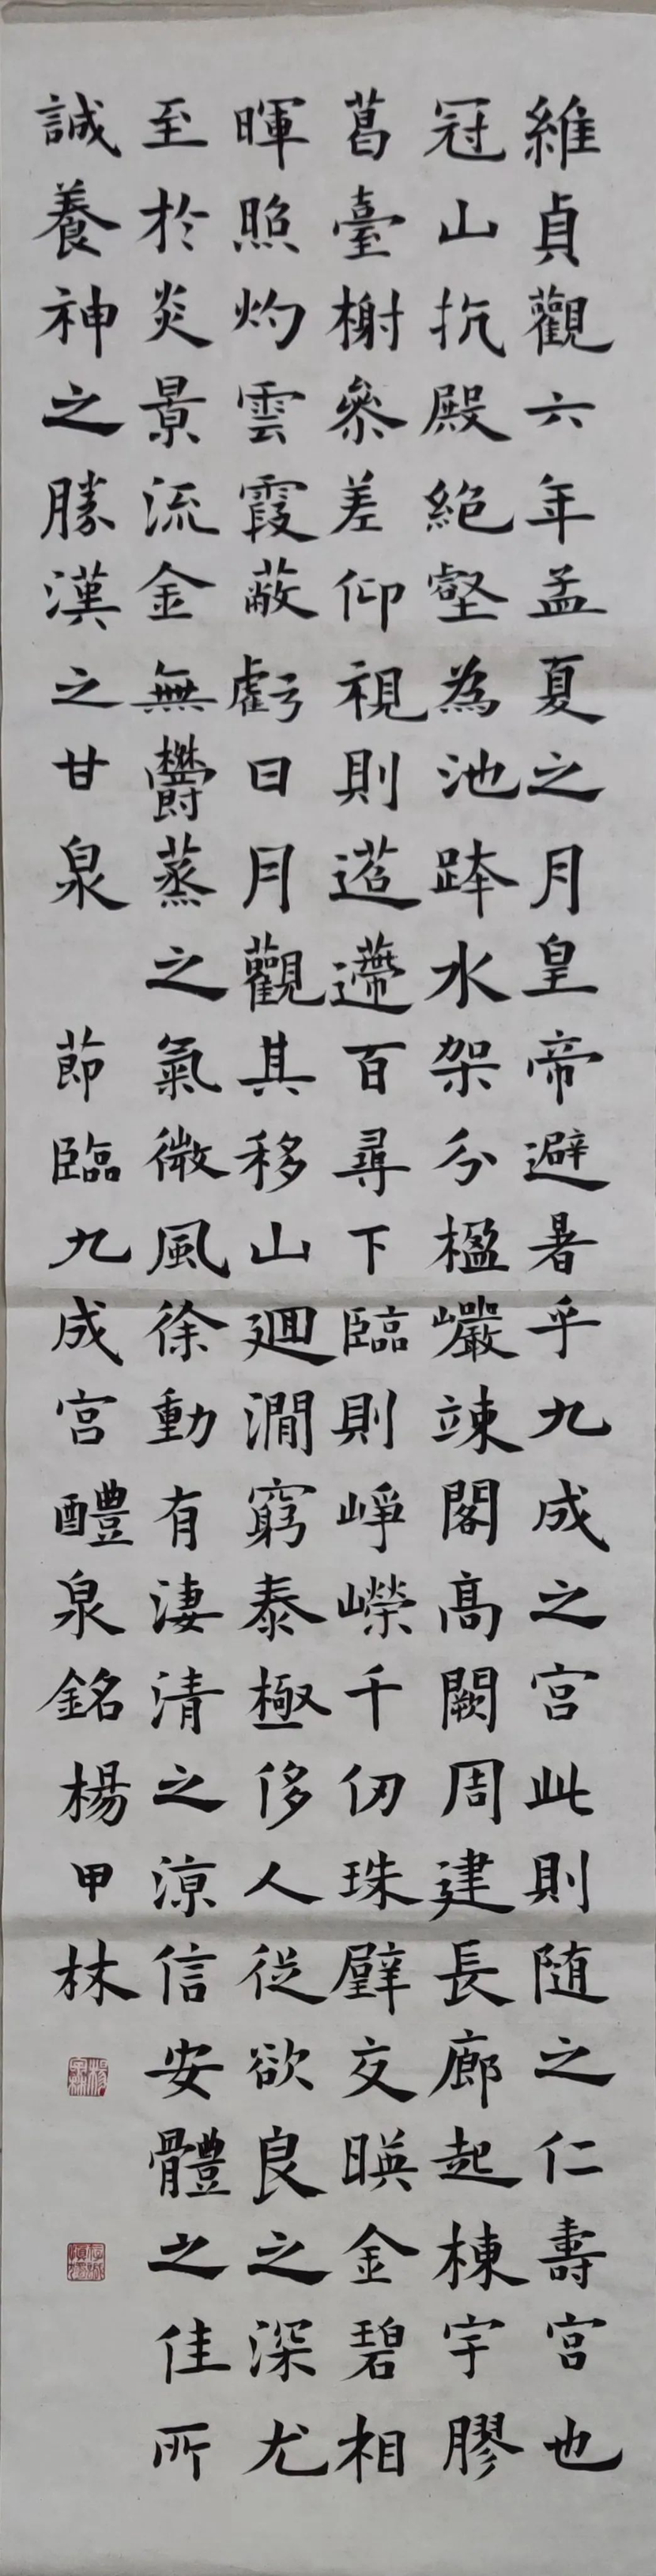 維貞觀六年孟夏之月皇帝避暑乎九成之宮此則随之仁壽宮也
冠山抗殿絶壑為池跨水架分楹巗竦閣高闕周建長廊起棟宇膠
葛臺榭參差仰視則迢遰百尋下臨則崢嶸千仞珠壁交暎金碧相
暉照灼雲霞蔽虧日月觀其移山廻澗窮泰極侈人從欲良之深尤
至於炎景流金無欝蒸之氣微風徐動有淒清之涼信安體之佳所
誠養神之勝漢之甘泉 節臨九成宮醴泉銘楊甲林